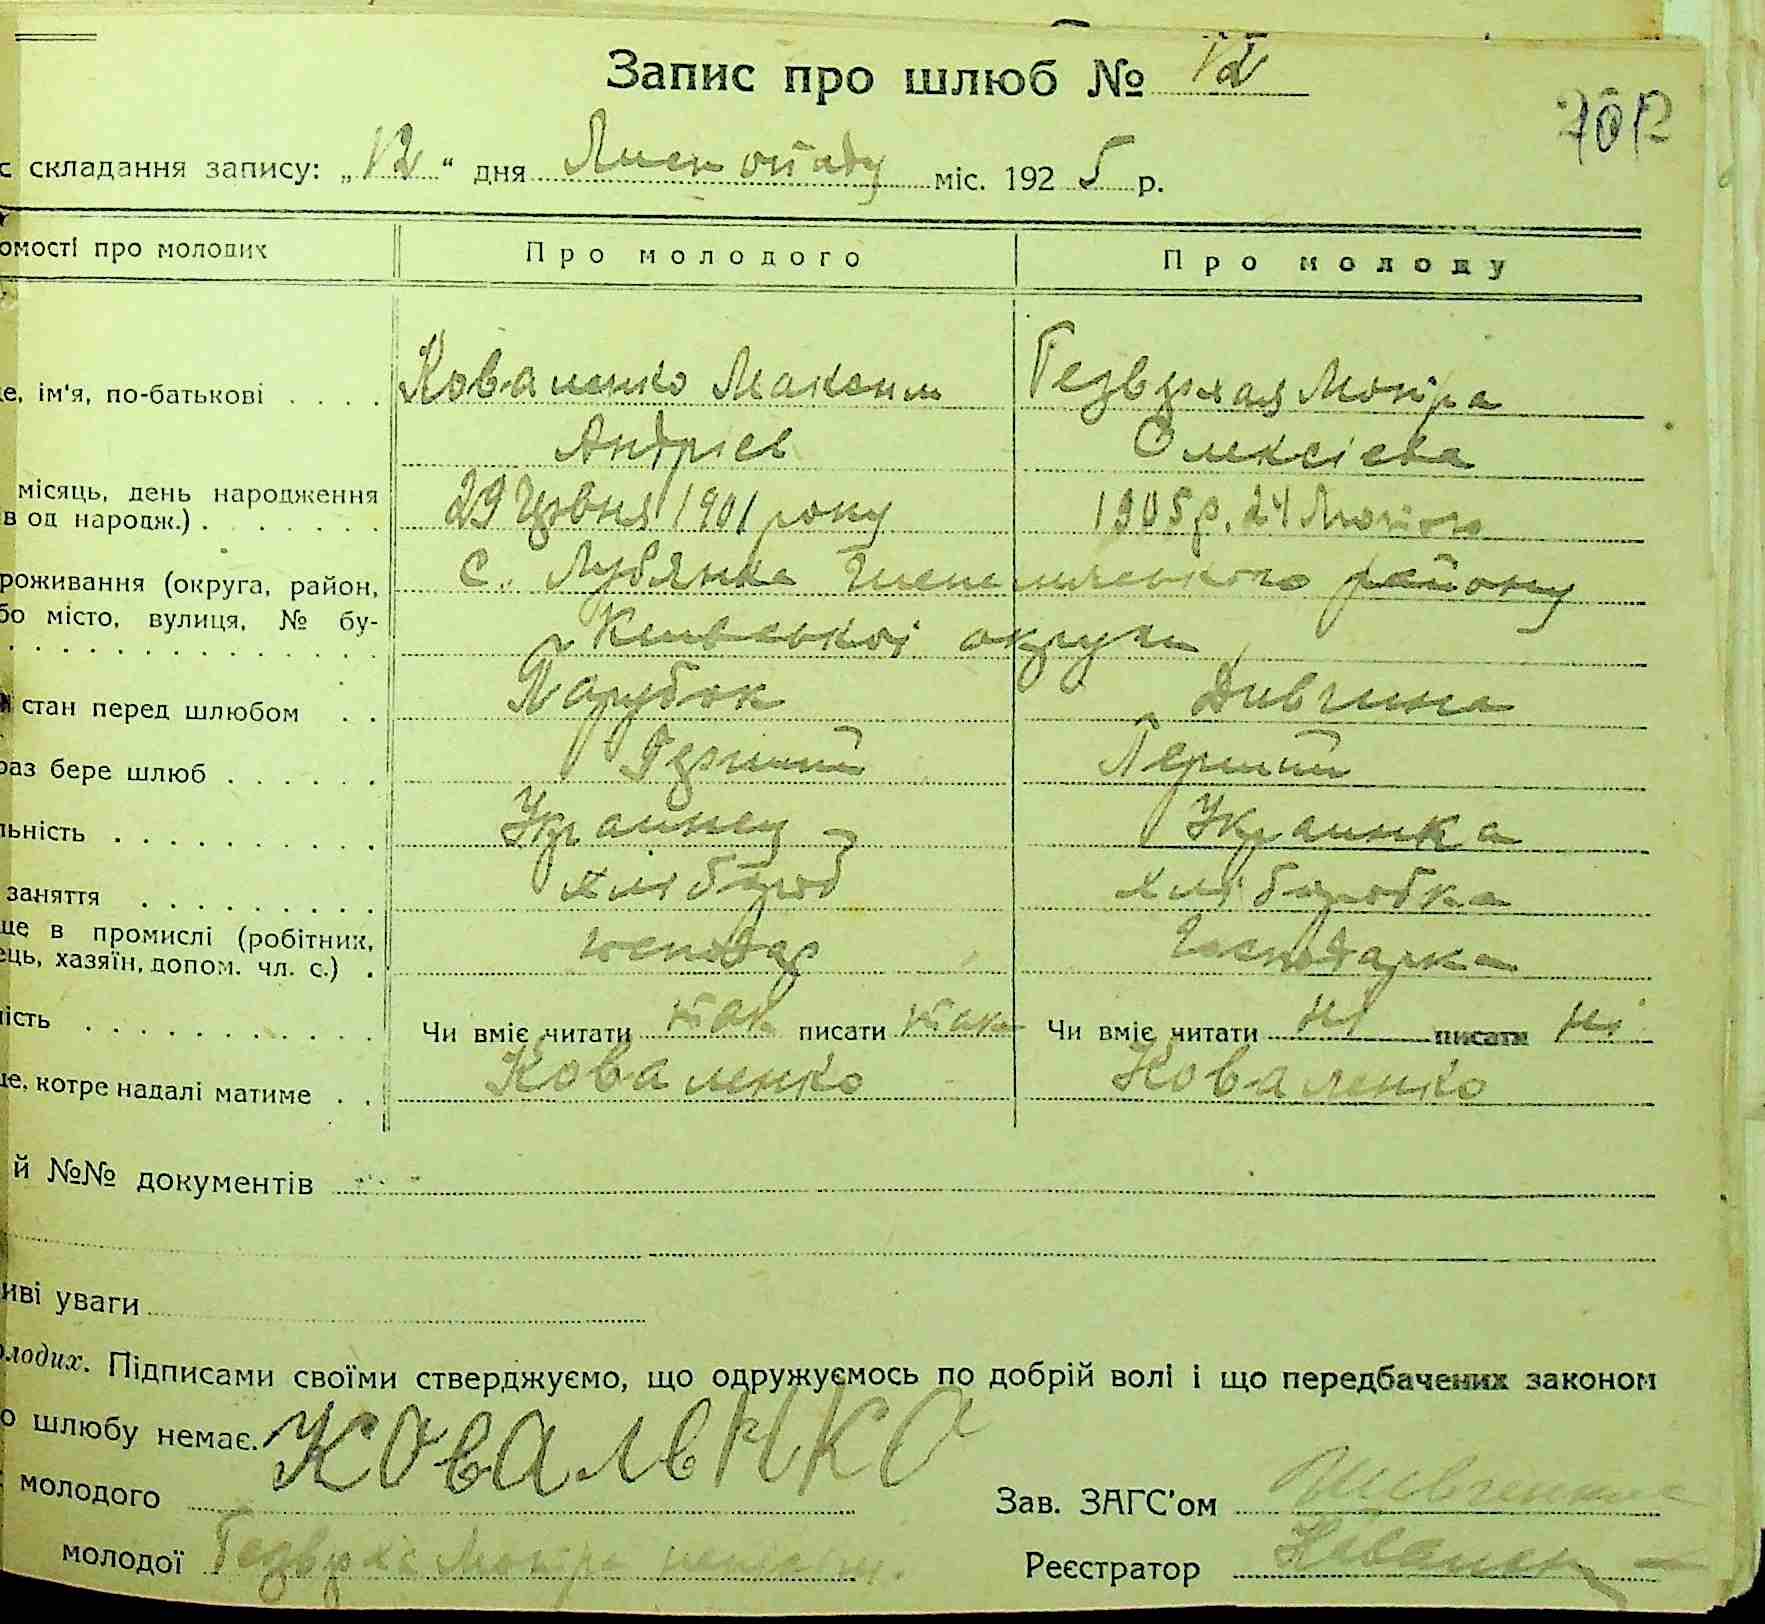 Запис про шлюб № 12
складання запису: „12“ дня Листопаду міс. 1925 р.
омості про молодих Про молодого Про молоду
е, ім'я, по-батькові . . . . Коваленко Максим Мотра
Андріев Олексієва
місяць, день народження
в од народж.) . . . . . . . 29 Червня 1901 року 1905 р. 24 Лютого
роживання (округа, район, с. Лубянка Шепелицького району
бо місто, вулиця, № бу-
Киівськоі округи
стан перед шлюбом . . Парубок Дивчина
раз бере шлюб . . . . . . Перший Перший
льність . . . . . . . . . . Украинец Украинка
заняття . . . . . . . . . хлібороб хліборобка
ще в промислі (робітник,
ець, хазяїн, допом. чл. с.) . господар Господарка
ість . . . . . . . . . . . Чи вміє читати так писати так Чи вміє читати ні писати ні
е, котре надалі матиме . . Коваленко Коваленко
й №№ документів
иві уваги
олодих. Підписами своїми стверджуємо, що одружуємось по добрій волі і що передбачених законом
о шлюбу немає.
молодого Ковальнко Зав. ЗАГС'ом Шевченко
молодої Мотра Реєстратор